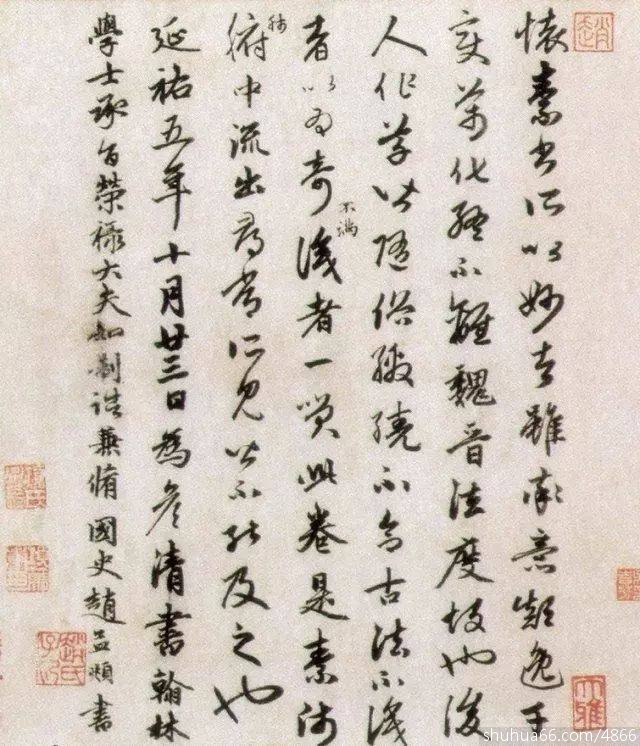 趙
懷素書所以妙者雖率意顛逸千
變萬化終不離魏晉法度故也後
人作草皆隨俗繳繞不合古法不識
者以為奇不滿識者一笑此卷是素師
肺腑中流出尋常所見皆不能及之也
延祐五年十月廿三日為彥清書翰林
學士承旨榮祿大夫知制誥兼脩國史趙孟頫書
趙氏子昂
大雅
shuhua66.com/4866